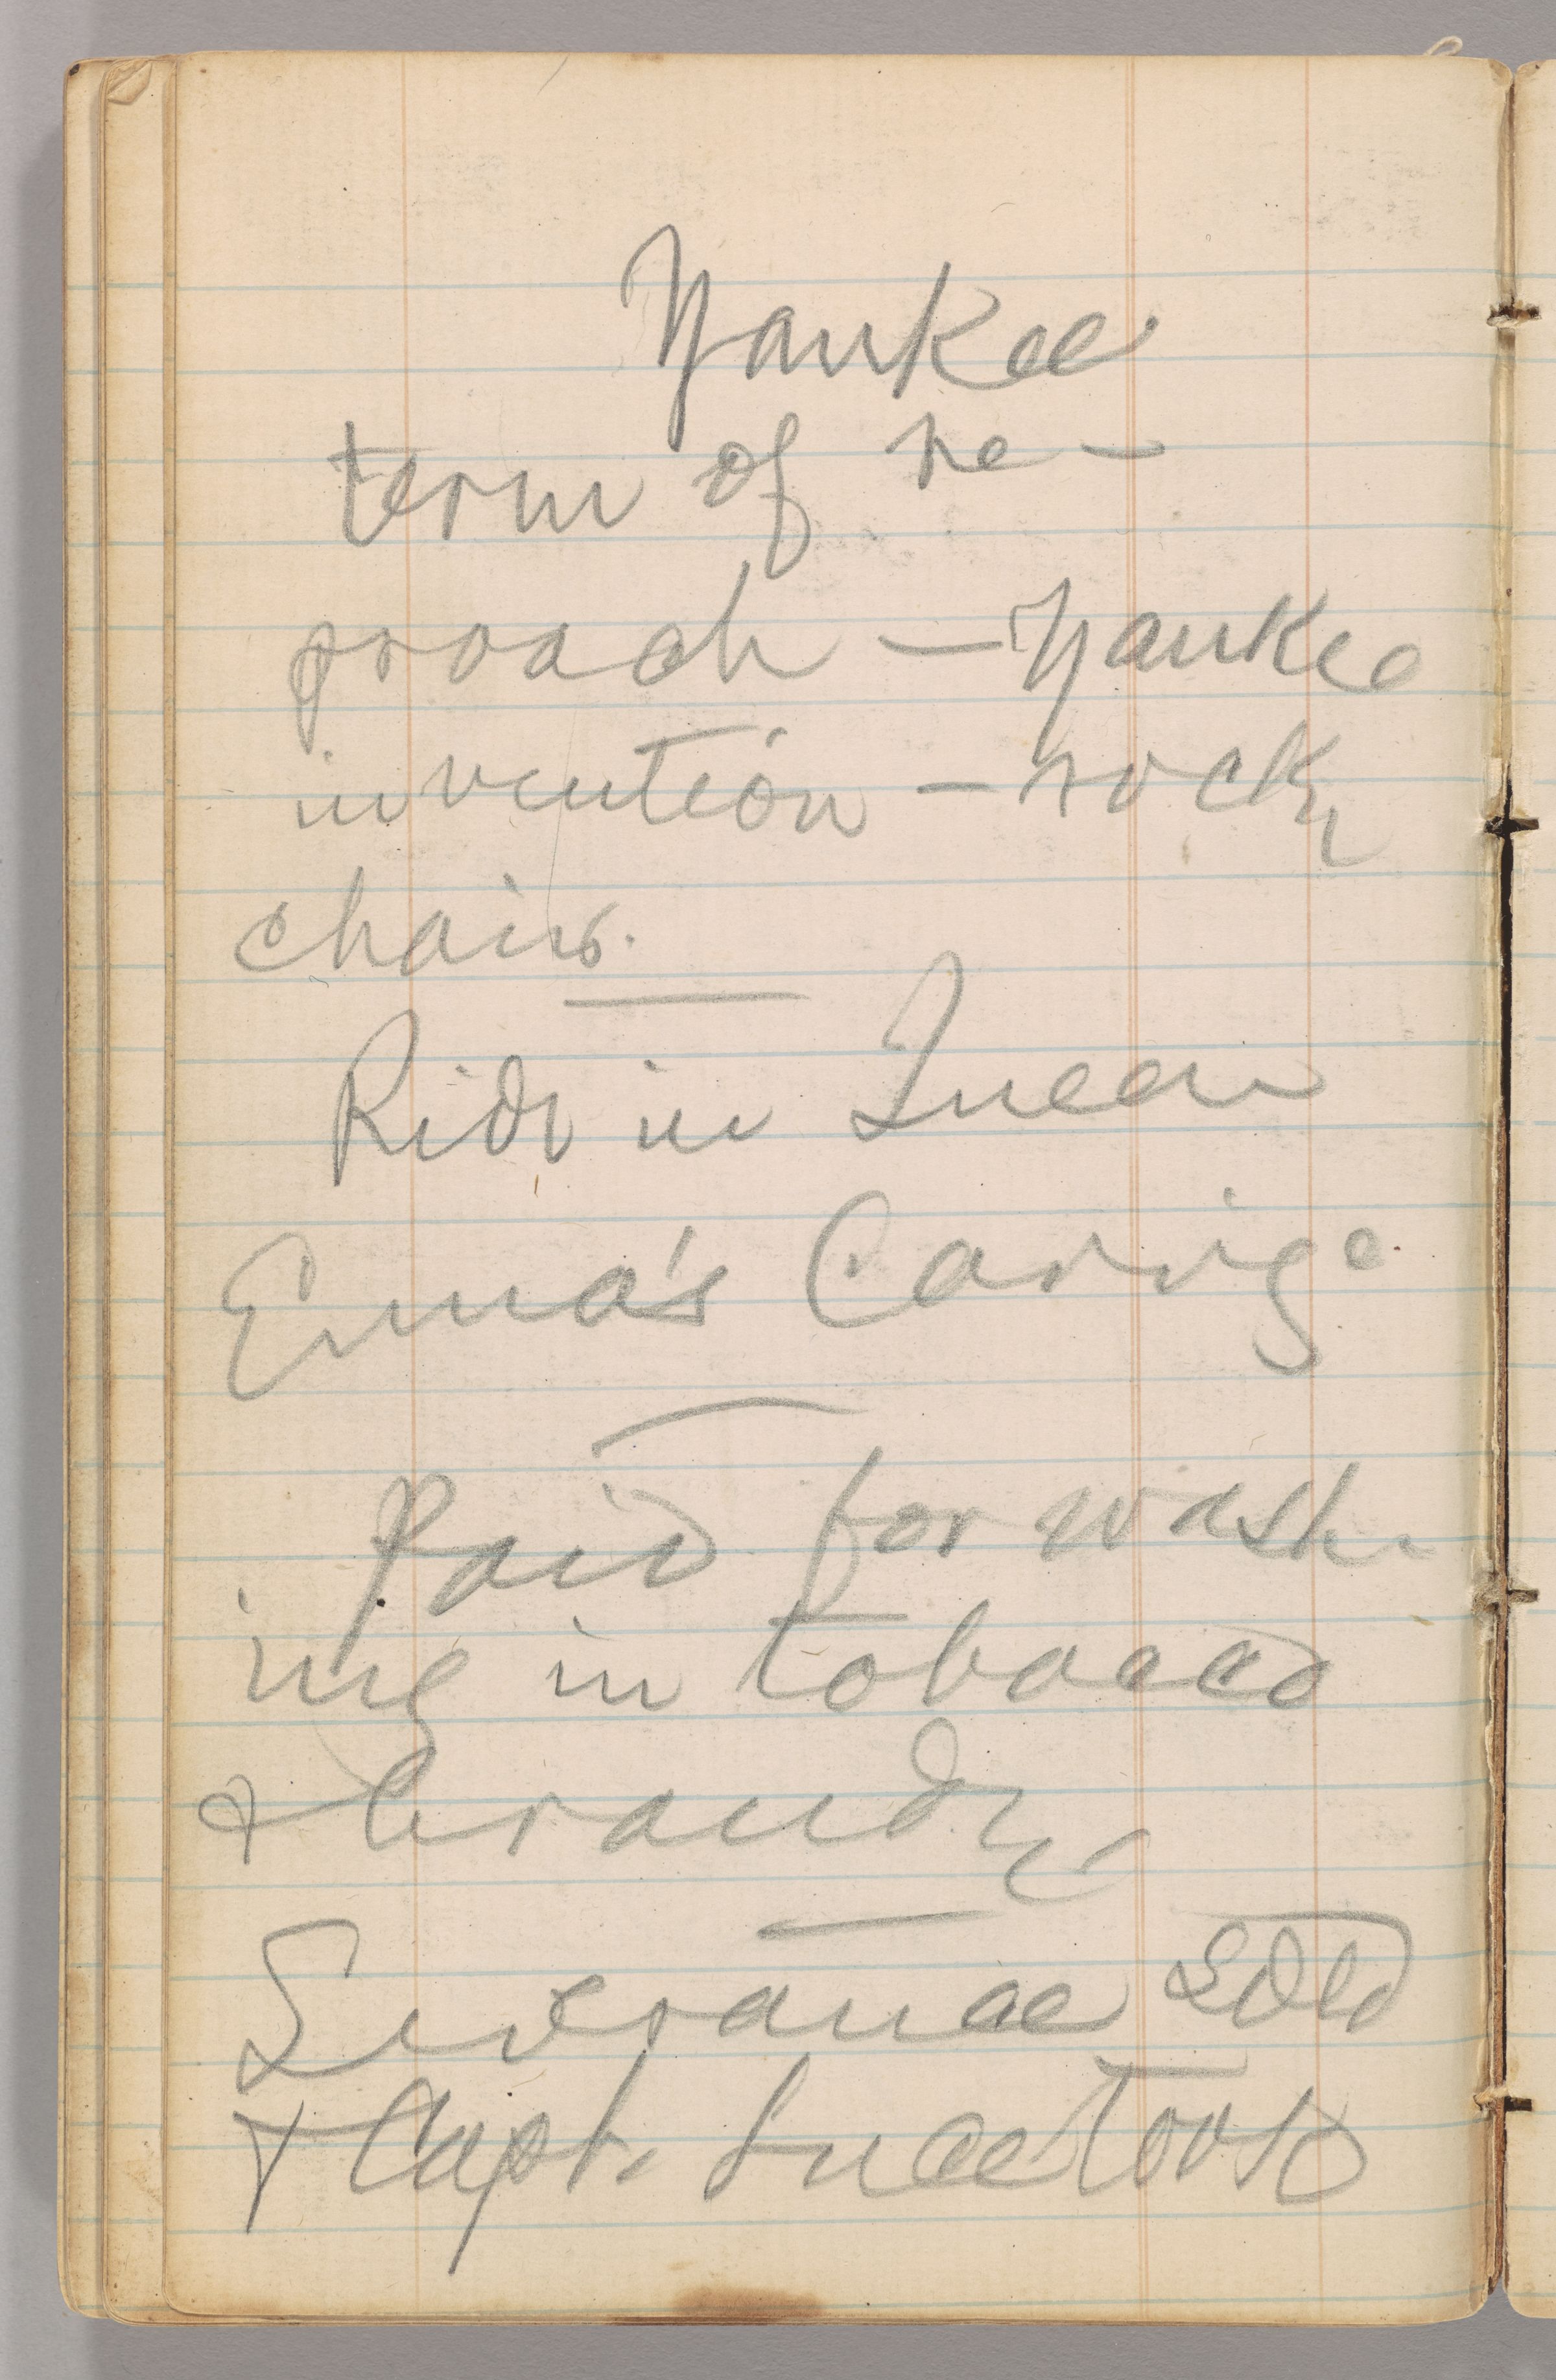 Yankee
term of re—
proach — Yankee
invention — rockg
chairs.
Ride in Queen
Emma's Carrige
Paid for wash-
ing in tobacco
& brandy
Severance sold
& Capt. Luce took